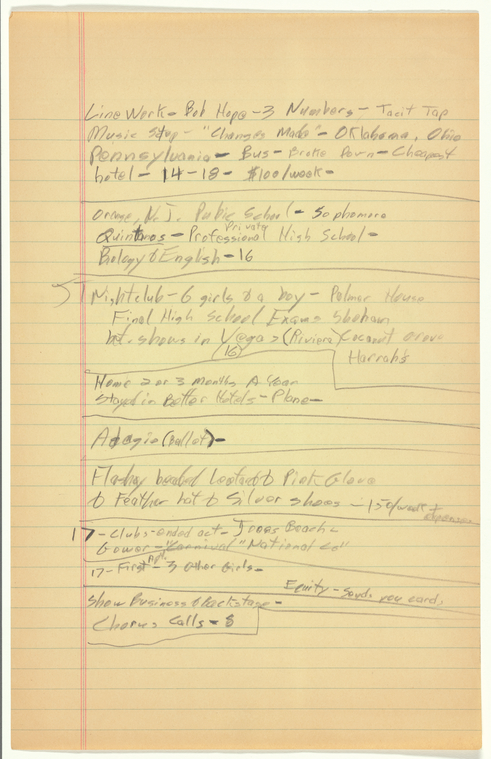 Line Work - Bob Hope - 3 Numbers - Tacit Tap
Music Stop - "Changes Made" - Oklahoma, Ohio
Pennsylvania - Bus - Broke Down - Cheapest
hotel - 14 - 18 - $100/week -
Orange, N.J. Public School - Sophomore
Private
Quintanos - Professional High School -
Biology & English - 16
Nightclub - 6 girls & a boy - Palmer House
Final High School Exams
hot. shows in Vegas (Riviera) Cocoanut Grove
(16)
Harrah's
Home 2 or 3 months A Year
Stayed in Better Hotels - Plane -
Adagio (Ballet) -
Flashy beaded Leotard & Pink Glove
& Feather hat & Silver shoes - 150/week +
expenses
17 - Clubs - ended act - Jones Beach -
Gower - "Carnival" "National Co"
17 - First Apt. - 3 Other Girls -
Equity - sends you card.
Show Business & Backstage -
Chorus Calls - 8